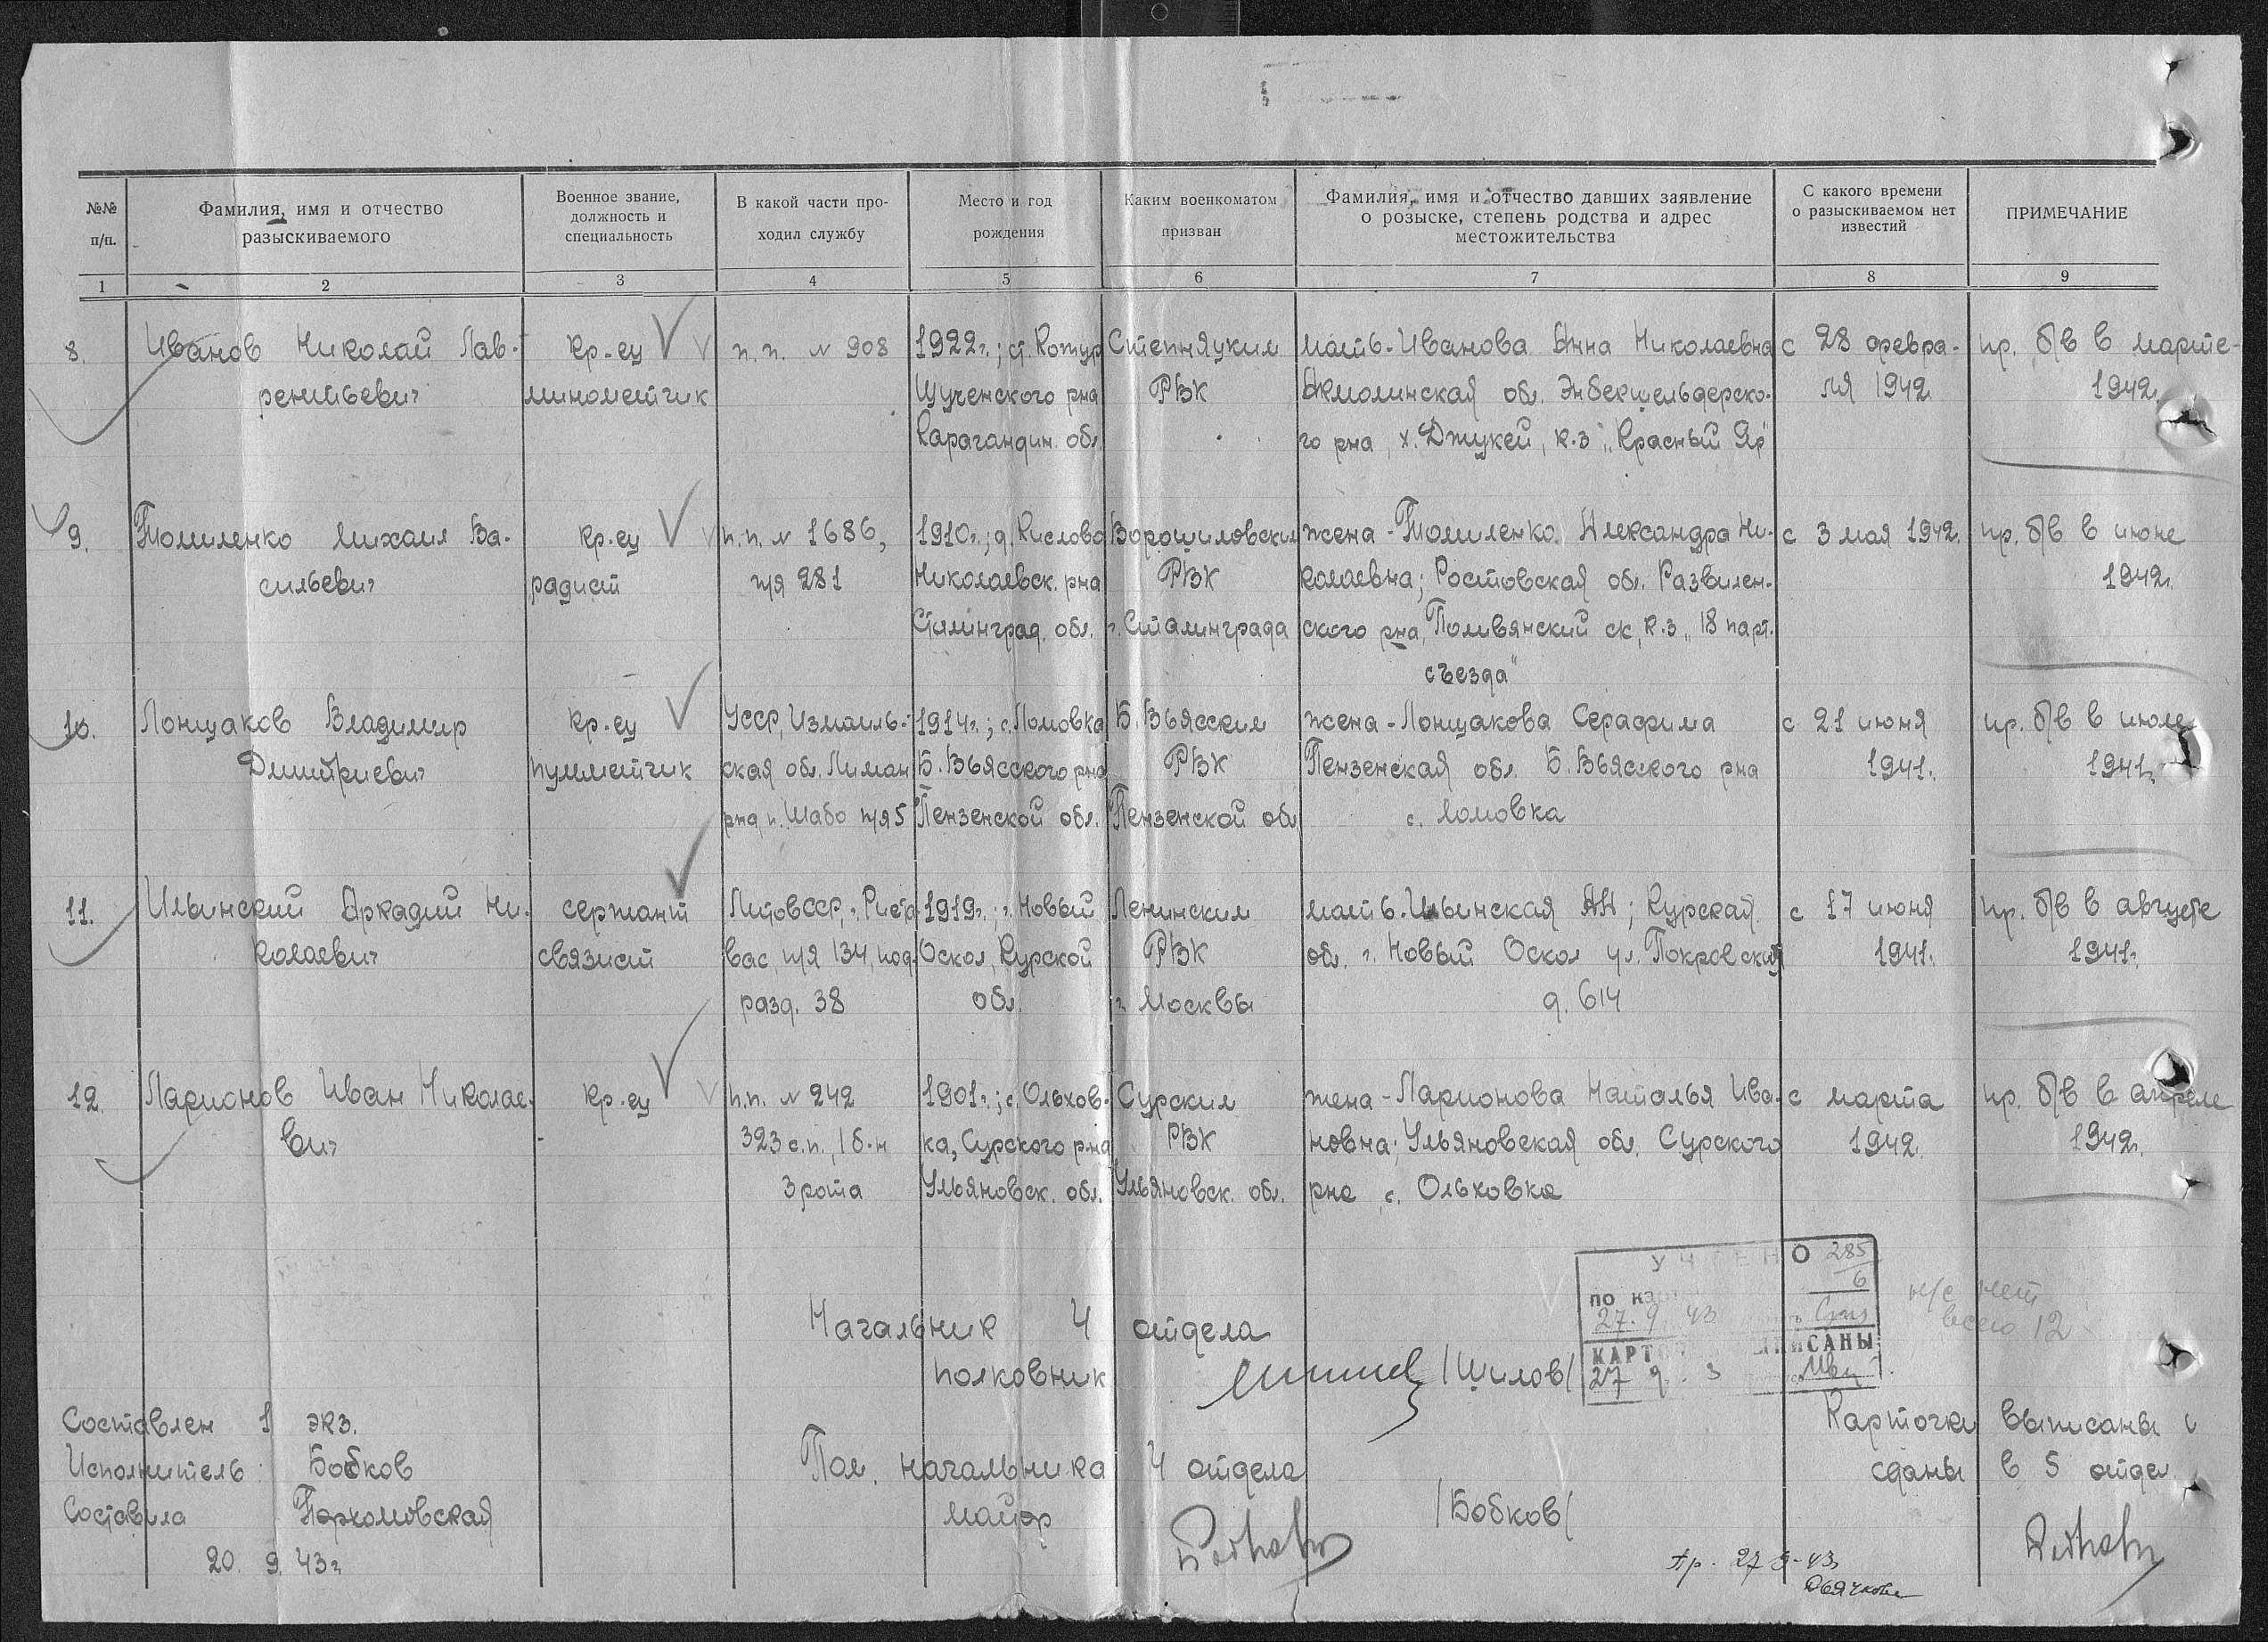 №№ п/п.
Фамилия, имя и отчество разыскиваемого
Военное звание, должность и специальность
В какой части проходил службу
Место и год рождения
Каким военкоматом призван
Фамилия, имя и отчество давших заявление о розыске, степень родства и адрес местожительства
С какого времени о разыскиваемом нет известий
ПРИМЕЧАНИЕ
1 2 3 4 5 6 7 8 9
8. Иванов Николай Лав- кр-ец п.п. № 908 1922г.; ст. Котур Степняцким мать-Иванова Анна Николаевна с 28 февра- пр. б/в в марте
рентьевич минометчик Щученского рна РВК Акмолинская обл. Энбекшельдерско- ля 1942 1942.
Карагандин. обл. го рна, х. Джукей, к-з „Красный Яр"
9. Томиленко Михаил Ва- кр-ец п.п. № 1686, 1910г.; д. Кислово Ворошиловским жена-Томиленко Александра Ни- с 3 мая 1942. пр. б/в в июне
сильевич радист п/я 281 Николаевск. рна РВК колаевна; Ростовская обл. Развилен- 1942г.
Сталинград. обл. г. Сталинграда ского рна, Поливянский с/с, к-з „18 парт.
съезда"
10. Лонщаков Владимир кр-ец УССР, Измаиль- 1914г.; с. Ломовка Б. Вьясским жена-Лонщакова Серафима с 21 июня пр. б/в в июле
Дмитриевич пулеметчик ская обл. Лиман Б. Вьясского рна РВК Пензенская обл. Б. Вьясского рна 1941г. 1941г.
рна, п. Шабо п/я 5 Пензенской обл. Пензенской обл с. Ломовка
11. Ильинский Аркадий Ни- сержант ЛитовССР, г. Риста- 1919г.; г. Новый Ленинским мать-Ильинская АН; Курская с 17 июня пр. б/в в августе
колаевич связист вас, п/я 134, под- Оскол, Курской РВК обл. г. Новый Оскол ул. Покровская 1941г. 1941г.
разд. 38 обл. г. Москвы д. 614
12. Ларионов Иван Николае- кр-ец п.п. № 242 1901г.; с. Ольхов- Сурским жена-Ларионова Наталья Ива- с марта пр. б/в в апреле
вич 323 с.п., 1 б-н ка, Сурского рна РВК новна; Ульяновская обл. Сурского 1942. 1942г.
3 рота Ульяновск. обл. Ульяновск. обл. рна с. Ольховка
УЧТЕНО 285
6
по
27.9 43
н/с нет
всего 12
Начальник 4 отдела
полковник /Шилов/
27 9. 3
Составлен 1 экз.
Исполнитель: Бобков
Составила Пархомовская
20. 9. 43г
Пом. начальника 4 отдела
майор /Бобков/
Карточки выписаны и
сданы в 5 отдел
Пр. 27-9-43